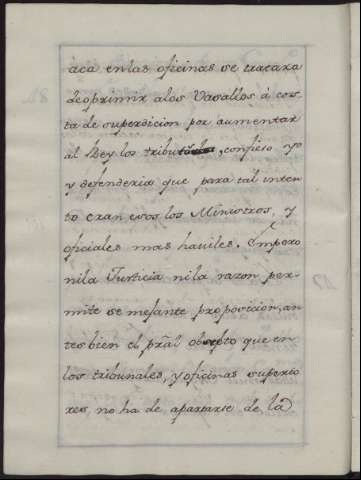 àca en las oficinas se tratara
de oprimir alos Vasallos à cos-
ta de su perdicion por aumentar
al Rey los tributos, confieso yo
y defenderia que para tal inten
to eran esos los Ministros, y
oficiales mas haviles. Empero
nila Justicia nila razon per-
mite se mejante proposicion, an
tes bien el prãl obgepto que en
los tribunales, y oficinas superio
res, no ha de apartarse de la